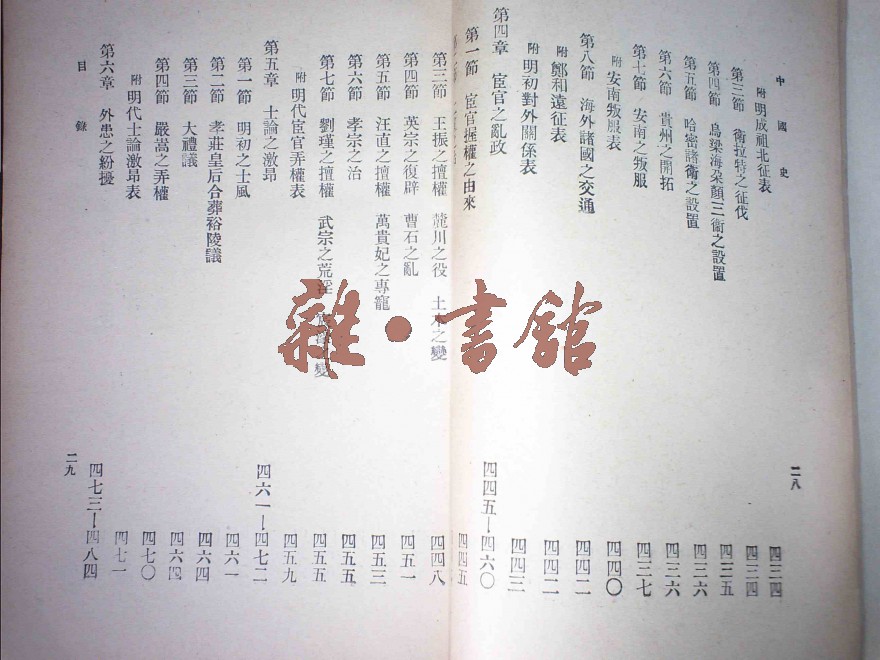 中國史
二八
附 明成祖北征表 四三四
第三節 衛拉特之征伐 四三四
第四節 烏梁海朵顏三衛之設置 四三五
第五節 哈密諸衛之設置 四三六
第六節 貴州之開拓 四三六
第七節 安南之叛服 四三七
附 安南叛服表 四四〇
第八節 海外諸國之交通 四四二
附 鄭和遠征表 四四二
附 明初對外關係表 四四三
第四章 宦官之亂政 四四五—四六〇
第一節 宦官握權之由來 四四五
第三節 王振之擅權 麓川之役 土木之變 四四八
第四節 英宗之復辟 曹石之亂 四五一
第五節 汪直之擅權 萬貴妃之專寵 四五三
第六節 孝宗之治 四五五
第七節 劉瑾之擅權 武宗之荒淫 之變 四五五
附 明代宦官弄權表 四五九
第五章 士論之激昂 四六一—四七二
第一節 明初之士風 四六一
第二節 孝莊皇后合葬裕陵議 四六四
第三節 大禮議 四六四
第四節 嚴嵩之弄權 四七〇
附 明代士論激昂表 四七一
第六章 外患之紛擾 四七三—四八四
目錄
二九
雜·書館